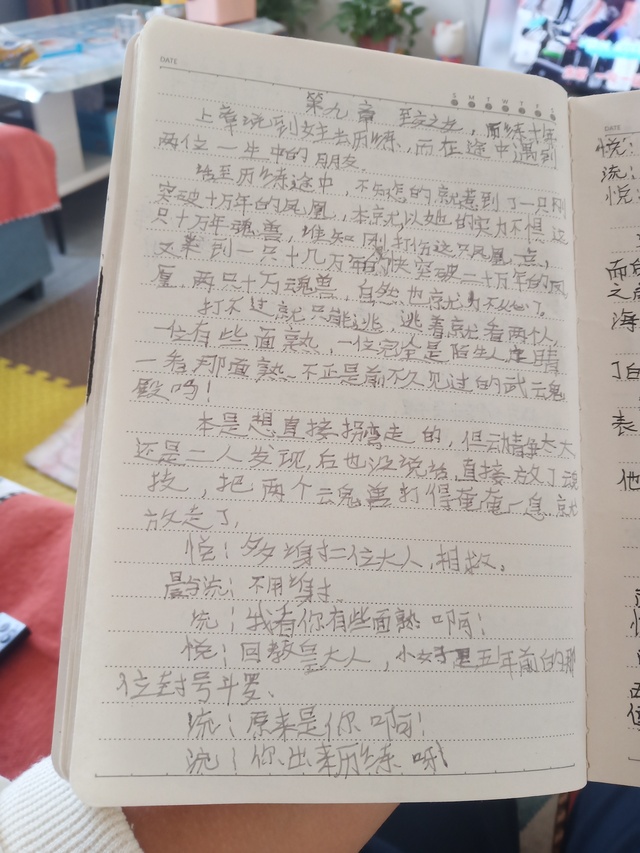 DATE
S M T W T F S
第九章 至交之友,
上章说到女主去历练,而在途中遇到
两位一生中的朋友。
话至历练途中,不知怎的就惹到了一只刚
突破十万年的凤凰,本就以她的实力不惧这
只十万年魂兽,谁知刚打伤这只凤凰点,
又来到一只十几万年的快突破二十万年的凤
凰,两只十万魂兽,自然也就打不过了。
打不过就只能逃,逃着就看两个人,
一位有些面熟,一位完全是陌生人定睛
一看那面熟不正是前不久见过的武云魂
殿吗!
本是想直接拐弯走的,但动静太大
还是二人发现,后也没说话,直接放了魂
技,把两个云鬼兽打得奄奄一息就
放走了,
悦:多谢二位大人,相救。
流:不用谢
流:我看你有些面熟啊!
悦:回教皇大人,小女子是五年前的那
位封号斗罗、
流:原来是你啊!
流:你出来历练呀!
DATE
悦:
流:
悦:
而
之
海
丁白
表
他